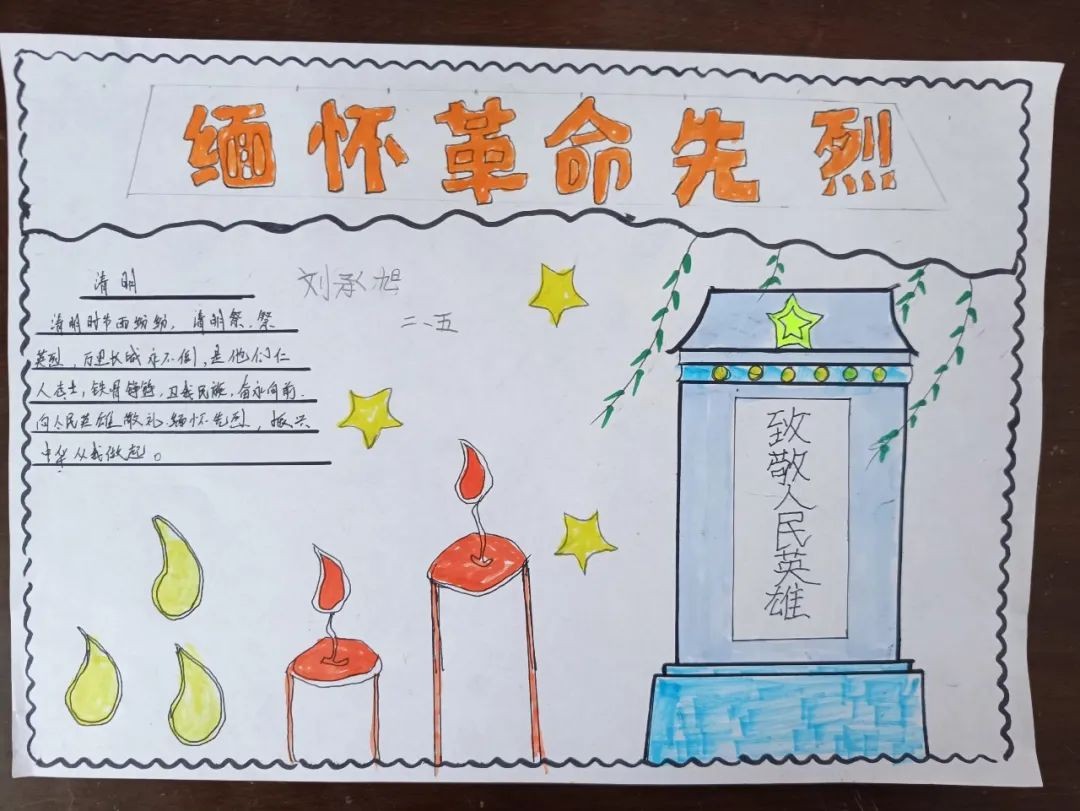 缅怀革命先烈
清明
刘承旭
二、五
清明时节雨纷纷，清明祭.祭
英烈，万里长城永不倒，是他们仁
人志士，铁骨铮铮，卫我民族，奋永向前.
向人民英雄敬礼.缅怀先烈，振兴
中华从我做起。
致敬人民英雄